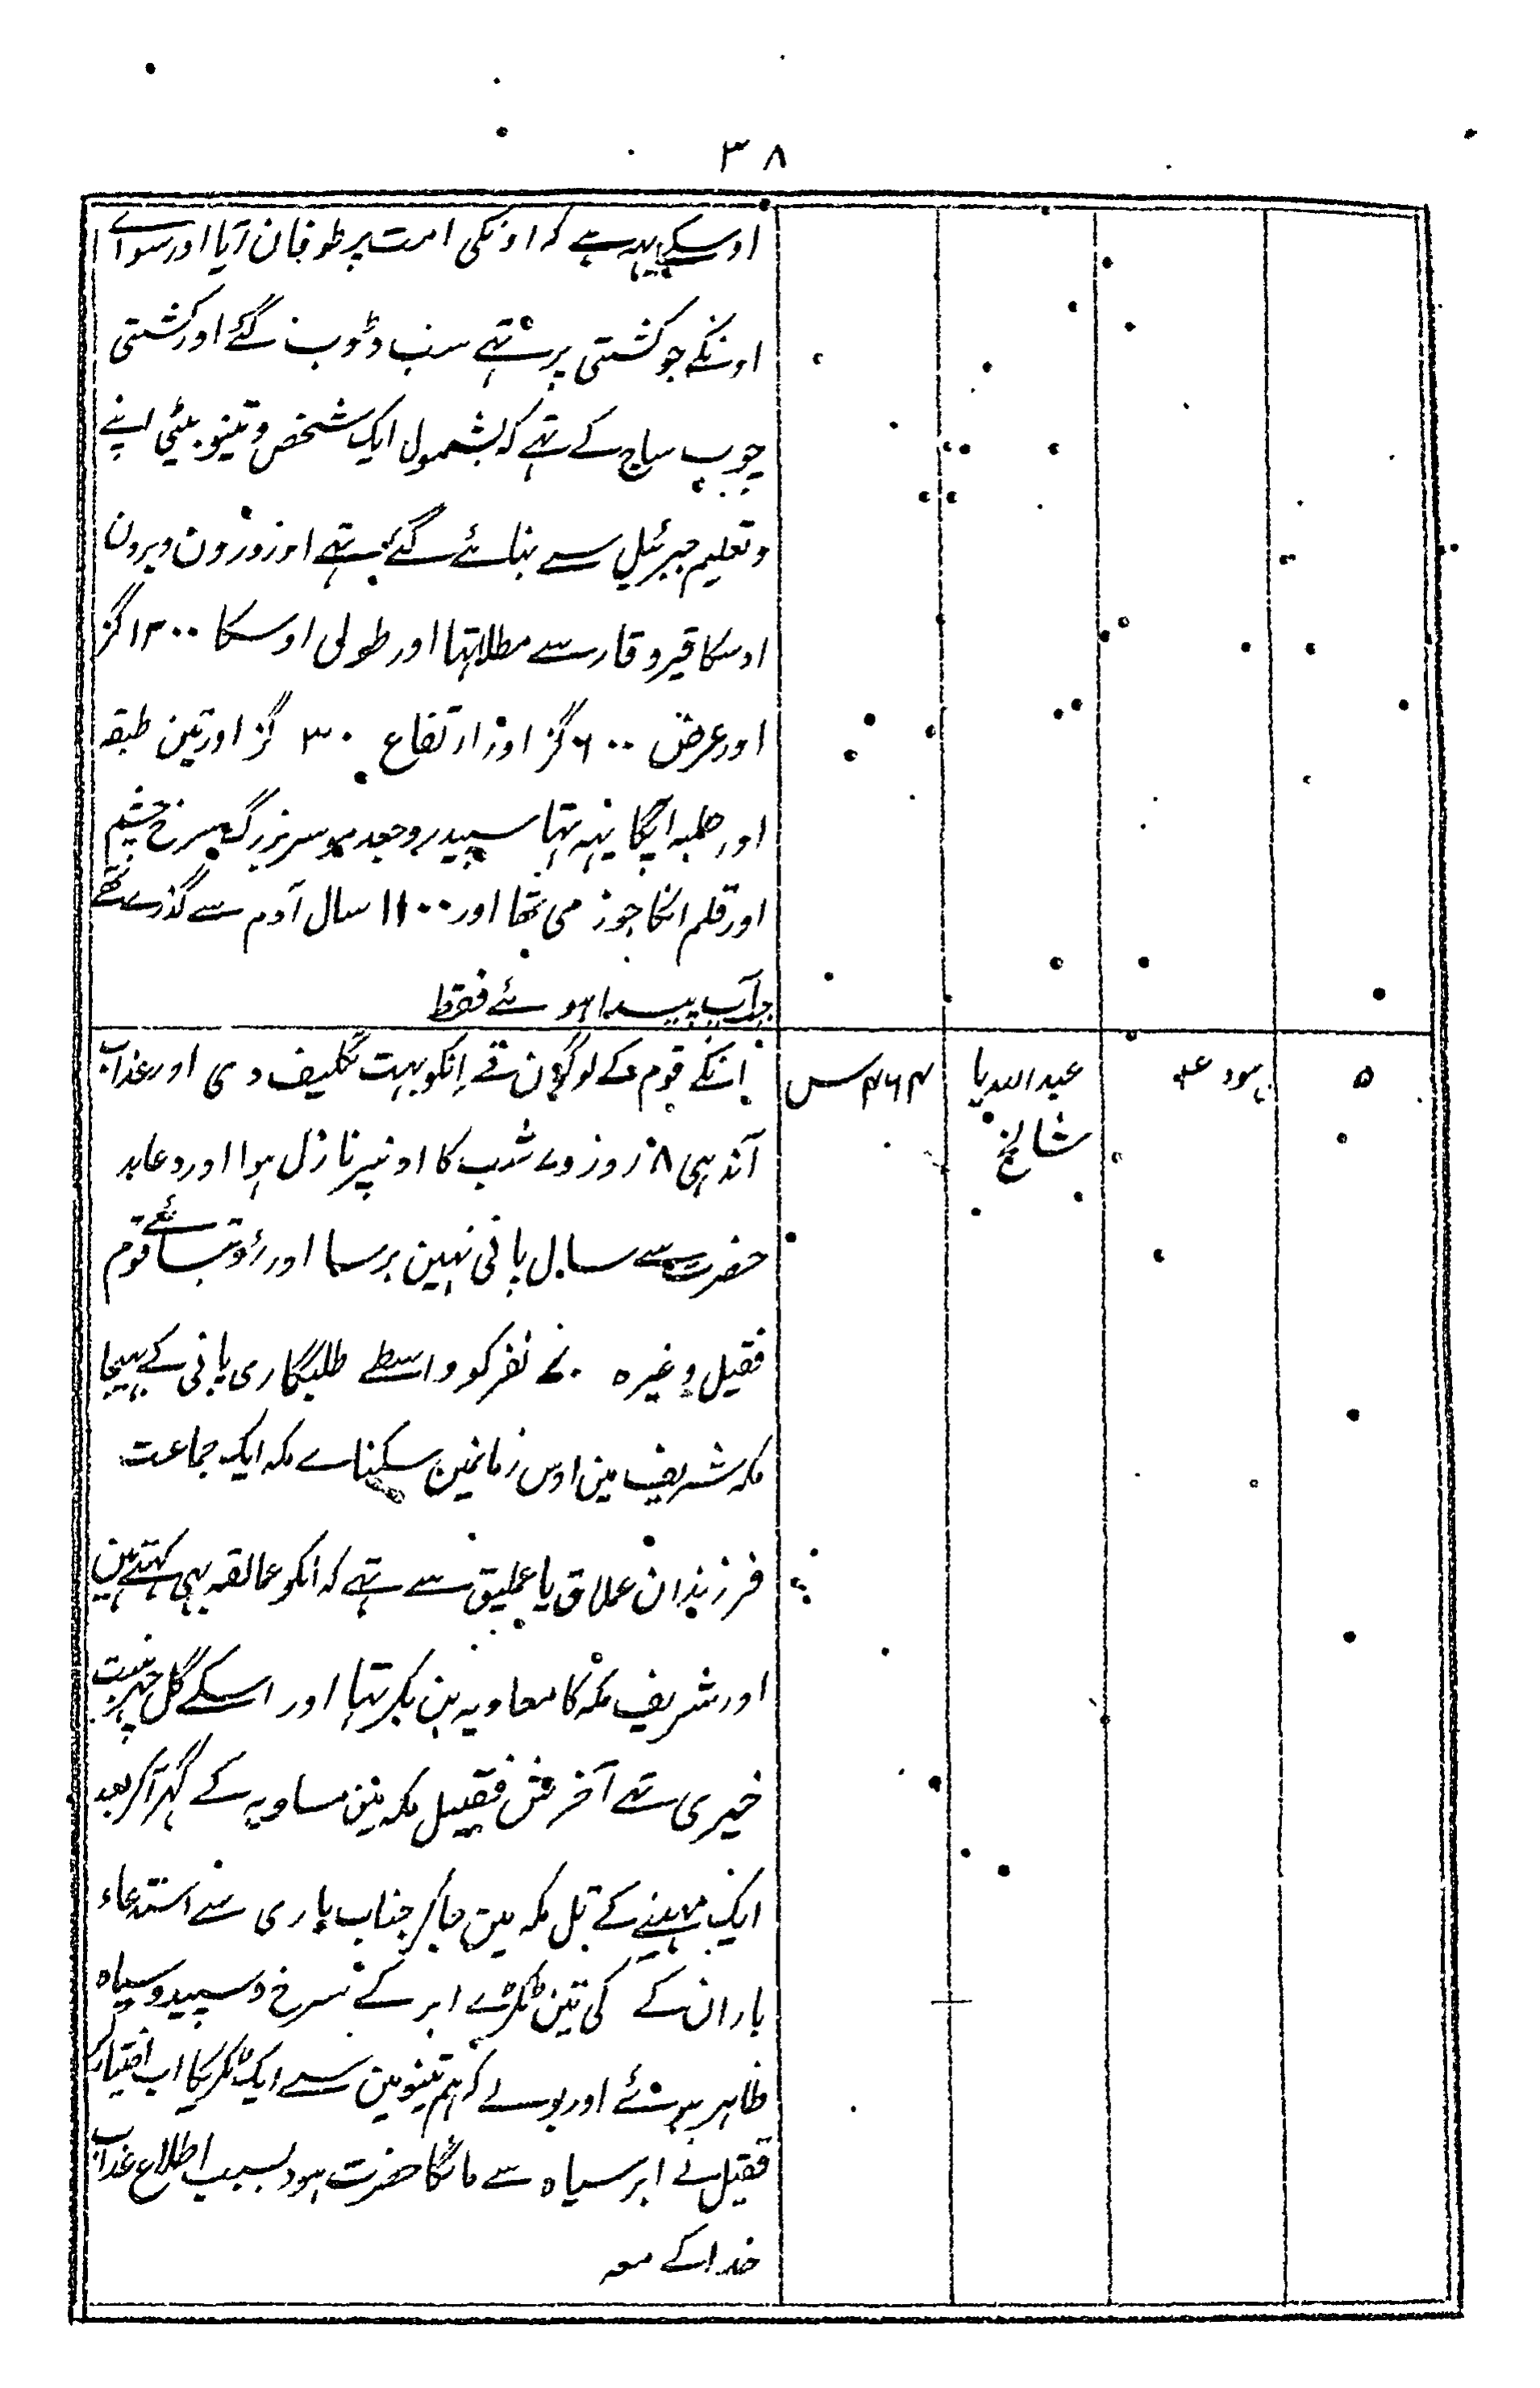 ۳۸
اوسکے یہہ ہے کہ اونکی امت پر طوفان آیا اور سواے
اونکے جو کشتی پر تہے سب ڈوب گئے اور کشتی
چوب ساج کے تہے کہ بشمول ایک شخص و تینو بیٹی اپنے
و تعلیم جبرئیل سے بنائے گئے تہے اور درون وبرون
اوسکا قیر و قار سے مطلا تہا اور طول اوسکا ۱۲۰۰ گز
اور عرض ۶۰۰ گز اور ارتفاع ۳۰ گز اور تین طبقہ
اور حلیہ آپکا یہہ تہا سپید رو جعد مو سر بزرگ سرخ چشم
اور قلم انکا جوز می تھا اور ۱۱۰۰ سال آدم سے گذرے تھے
جب آپ پیدا ہوئے فقط
۵
ہود ع
عبد اللہ یا
شالخ
۴۶۴ س
انکے قوم کے لوگون نے انکو بہت تکلیف دی اور عذاب
آندہی ۸ روز و شب کا اونپر نازل ہوا اور دعا بد
حضرت سے سال پانی نہین برسا اور رؤسائے قوم
فقیل وغیرہ ۷۰ نفر کو واسطے طلبگاری پانی کے بہیجا
مکہ شریف مین اوس زمانمین سکناے مکہ ایک جماعت
فرزندان عملاق یا عملیق سے تہے کہ انکو عمالقہ بہی کہتے ہین
اور شریف مکہ کا معاویہ بن بکر تہا اور اسکے گل
خیری تہے آخرش فقیل مکہ مین معاویہ کے گہر آکر بعد
ایک مہینے کے تل مکہ مین جاکر جناب باری سے استدعاء
باران کے کی تین ٹکڑے ابر کے سرخ و سپید و سیاہ
ظاہر ہوئے اور بولے کہ ہم تینو مین سے ایک ٹکڑیکا اب اختیار کر
فقیل نے ابر سیاہ سے مانگا حضرت ہود بسبب اطلاع عذاب
خدا کے معہ